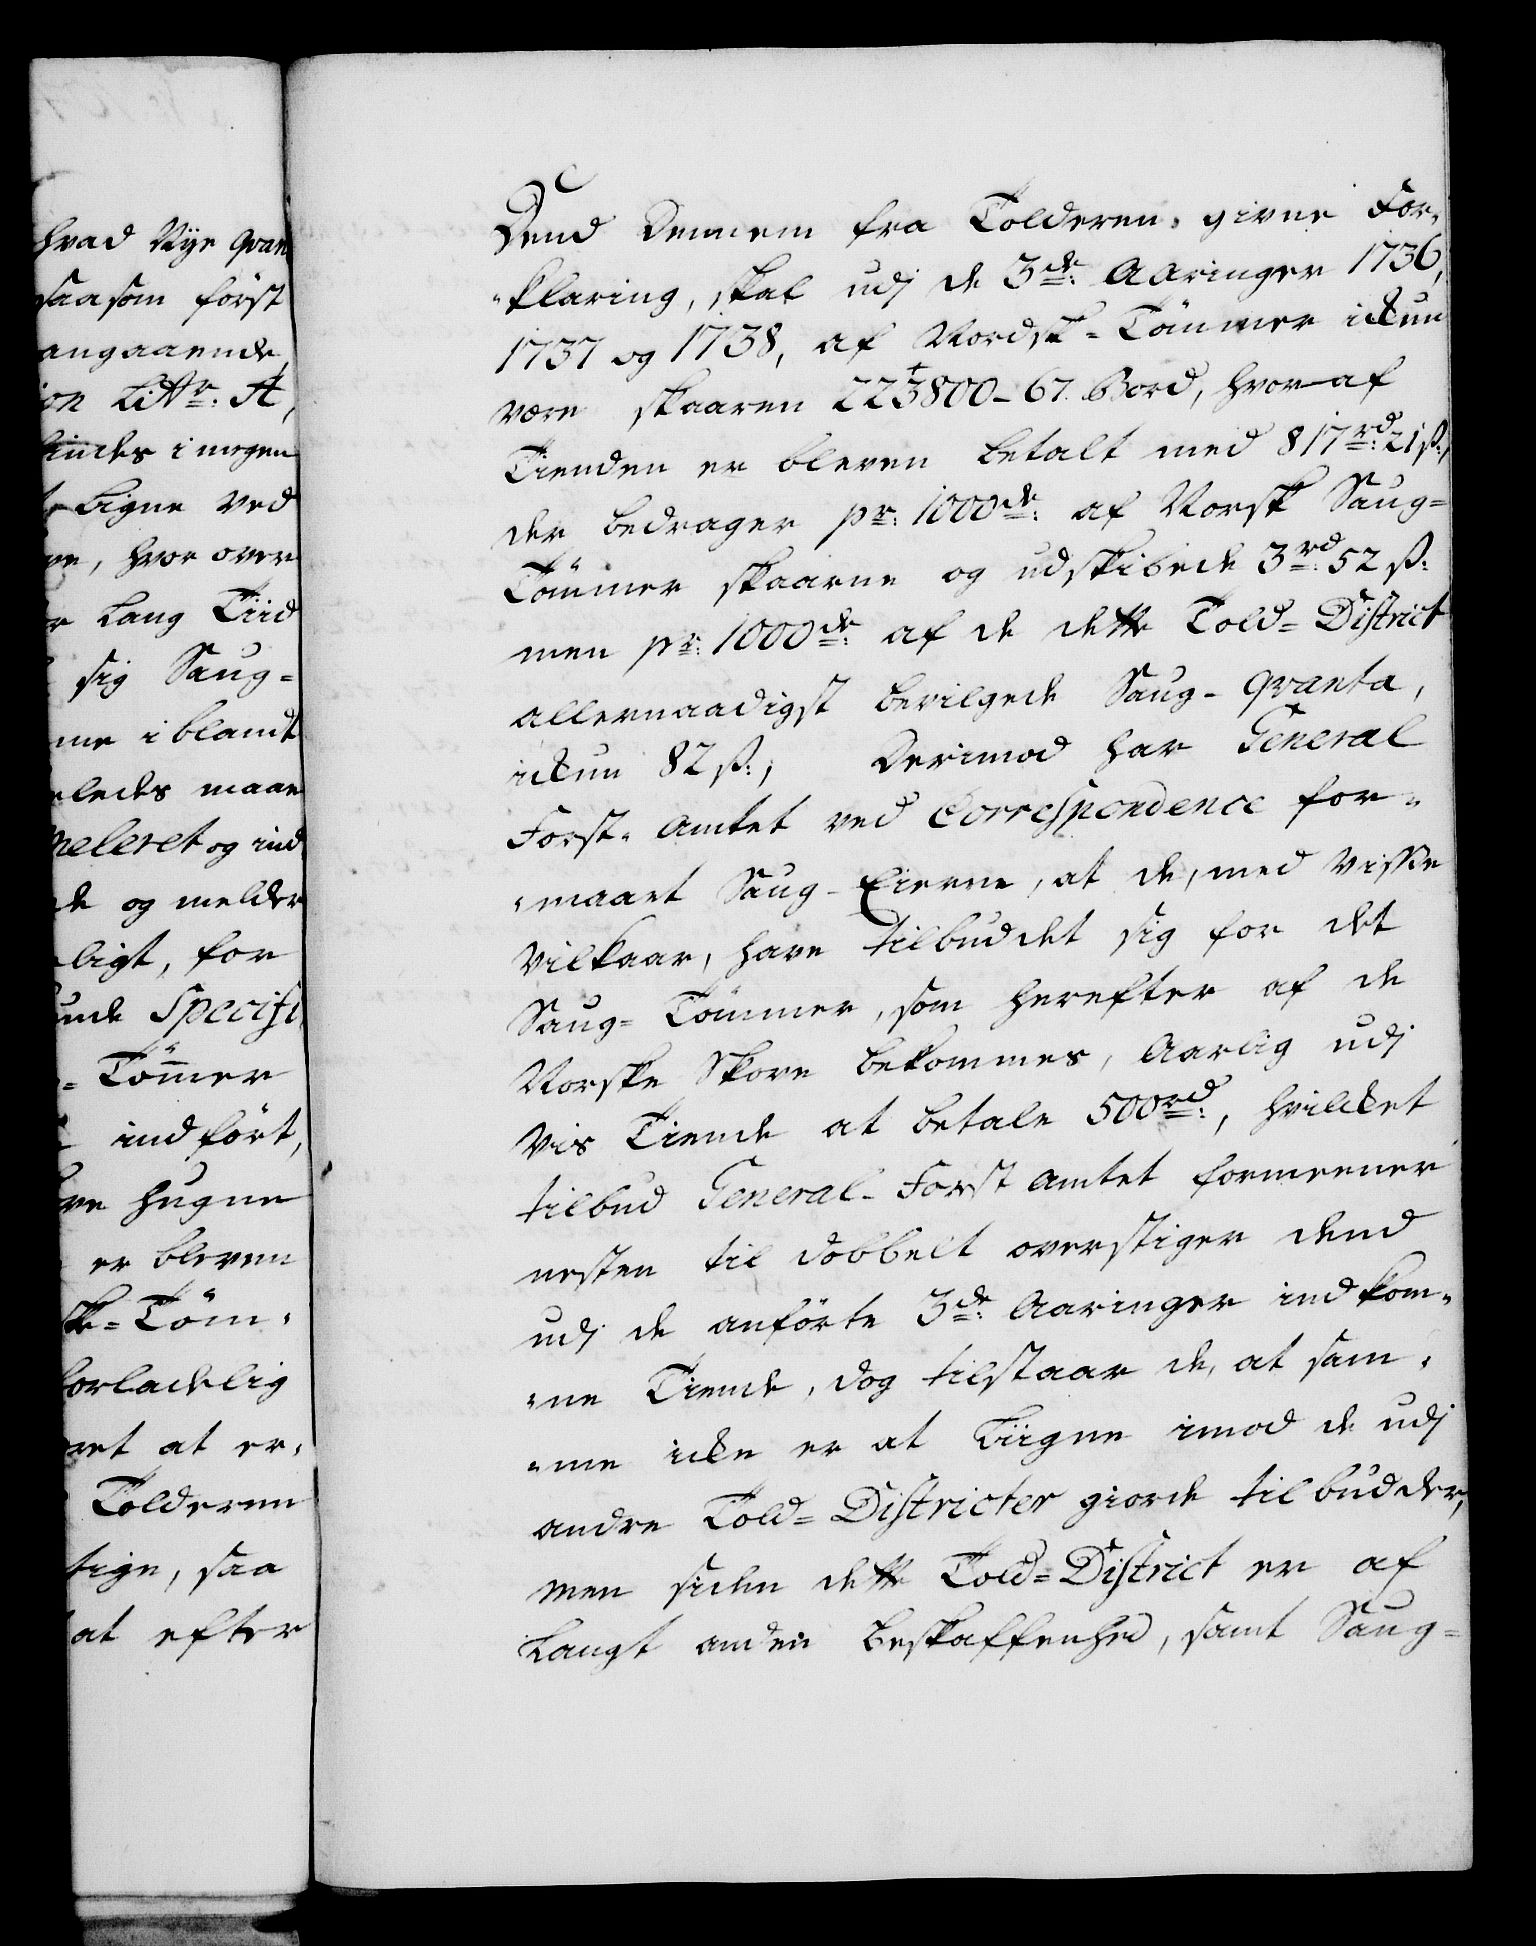 hvad Nÿe qvan
saasom först
angaaende,
ion Littr: A,
findes i megen
Ligne ved
ve, hvor over
r Lang Tiid
sig Saug=
me i blandt
eledes maae
meleret og ind
de og melder
ligt, for
unde Specifi
= Tömmer
indfört,
ve hugne
er bleven
ske=Töm,
forladelig
vet at er,
Tolderen
tige, saa
at efter
Dend Dennem fra Tolderen, givne For,
,klaring, skal udj de 3de: Aaringer 1736,
1737 og 1738, af Nordsk=Tömmer ickun
være skaaren 223800-67. Bord, hvor af
Tienden er bleven betalt med 817rd: 21ß,
der bedrager pr: 1000de: af Norsk Saug=
Tömmer skaarne og udskibede 3rd: 52 ß:
men pr: 1000de: af de dette Told=District
allernaadigst bevilgede Saug-qvanta,
ickun 82 ß:; Derimod har General
Forst-Amtet ved Correspondence for,
,maaet Saug-Eierne, at de, med Visse
Vilkaar, have tilbuddet sig for det
Saug=Tömmer, som herefter af de
Norske Skove bekommes, Aarlig udj
Vis Tiende at betale 500rd:, hvilcket
tilbud General-Forst Amtet formeener
nesten til dobbelt overstiger dend
udj de anförte 3de: Aaringer indkom,
,ne Tiende, dog tilstaar de, at sam,
,me icke er at Liigne imod de udj
andre Told=Districter giorde tilbudder,
men siden dette Told=District er af
Langt anden beskaffenhed, samt Saug=